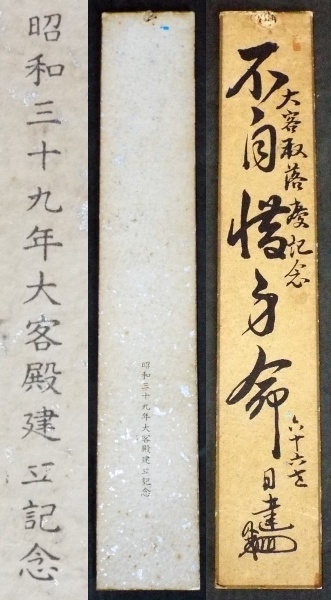 昭和三十九年大客殿建立記念
昭和三十九年大客殿建立記念
大客殿落慶記念
不自惜身命
六十六才
日達